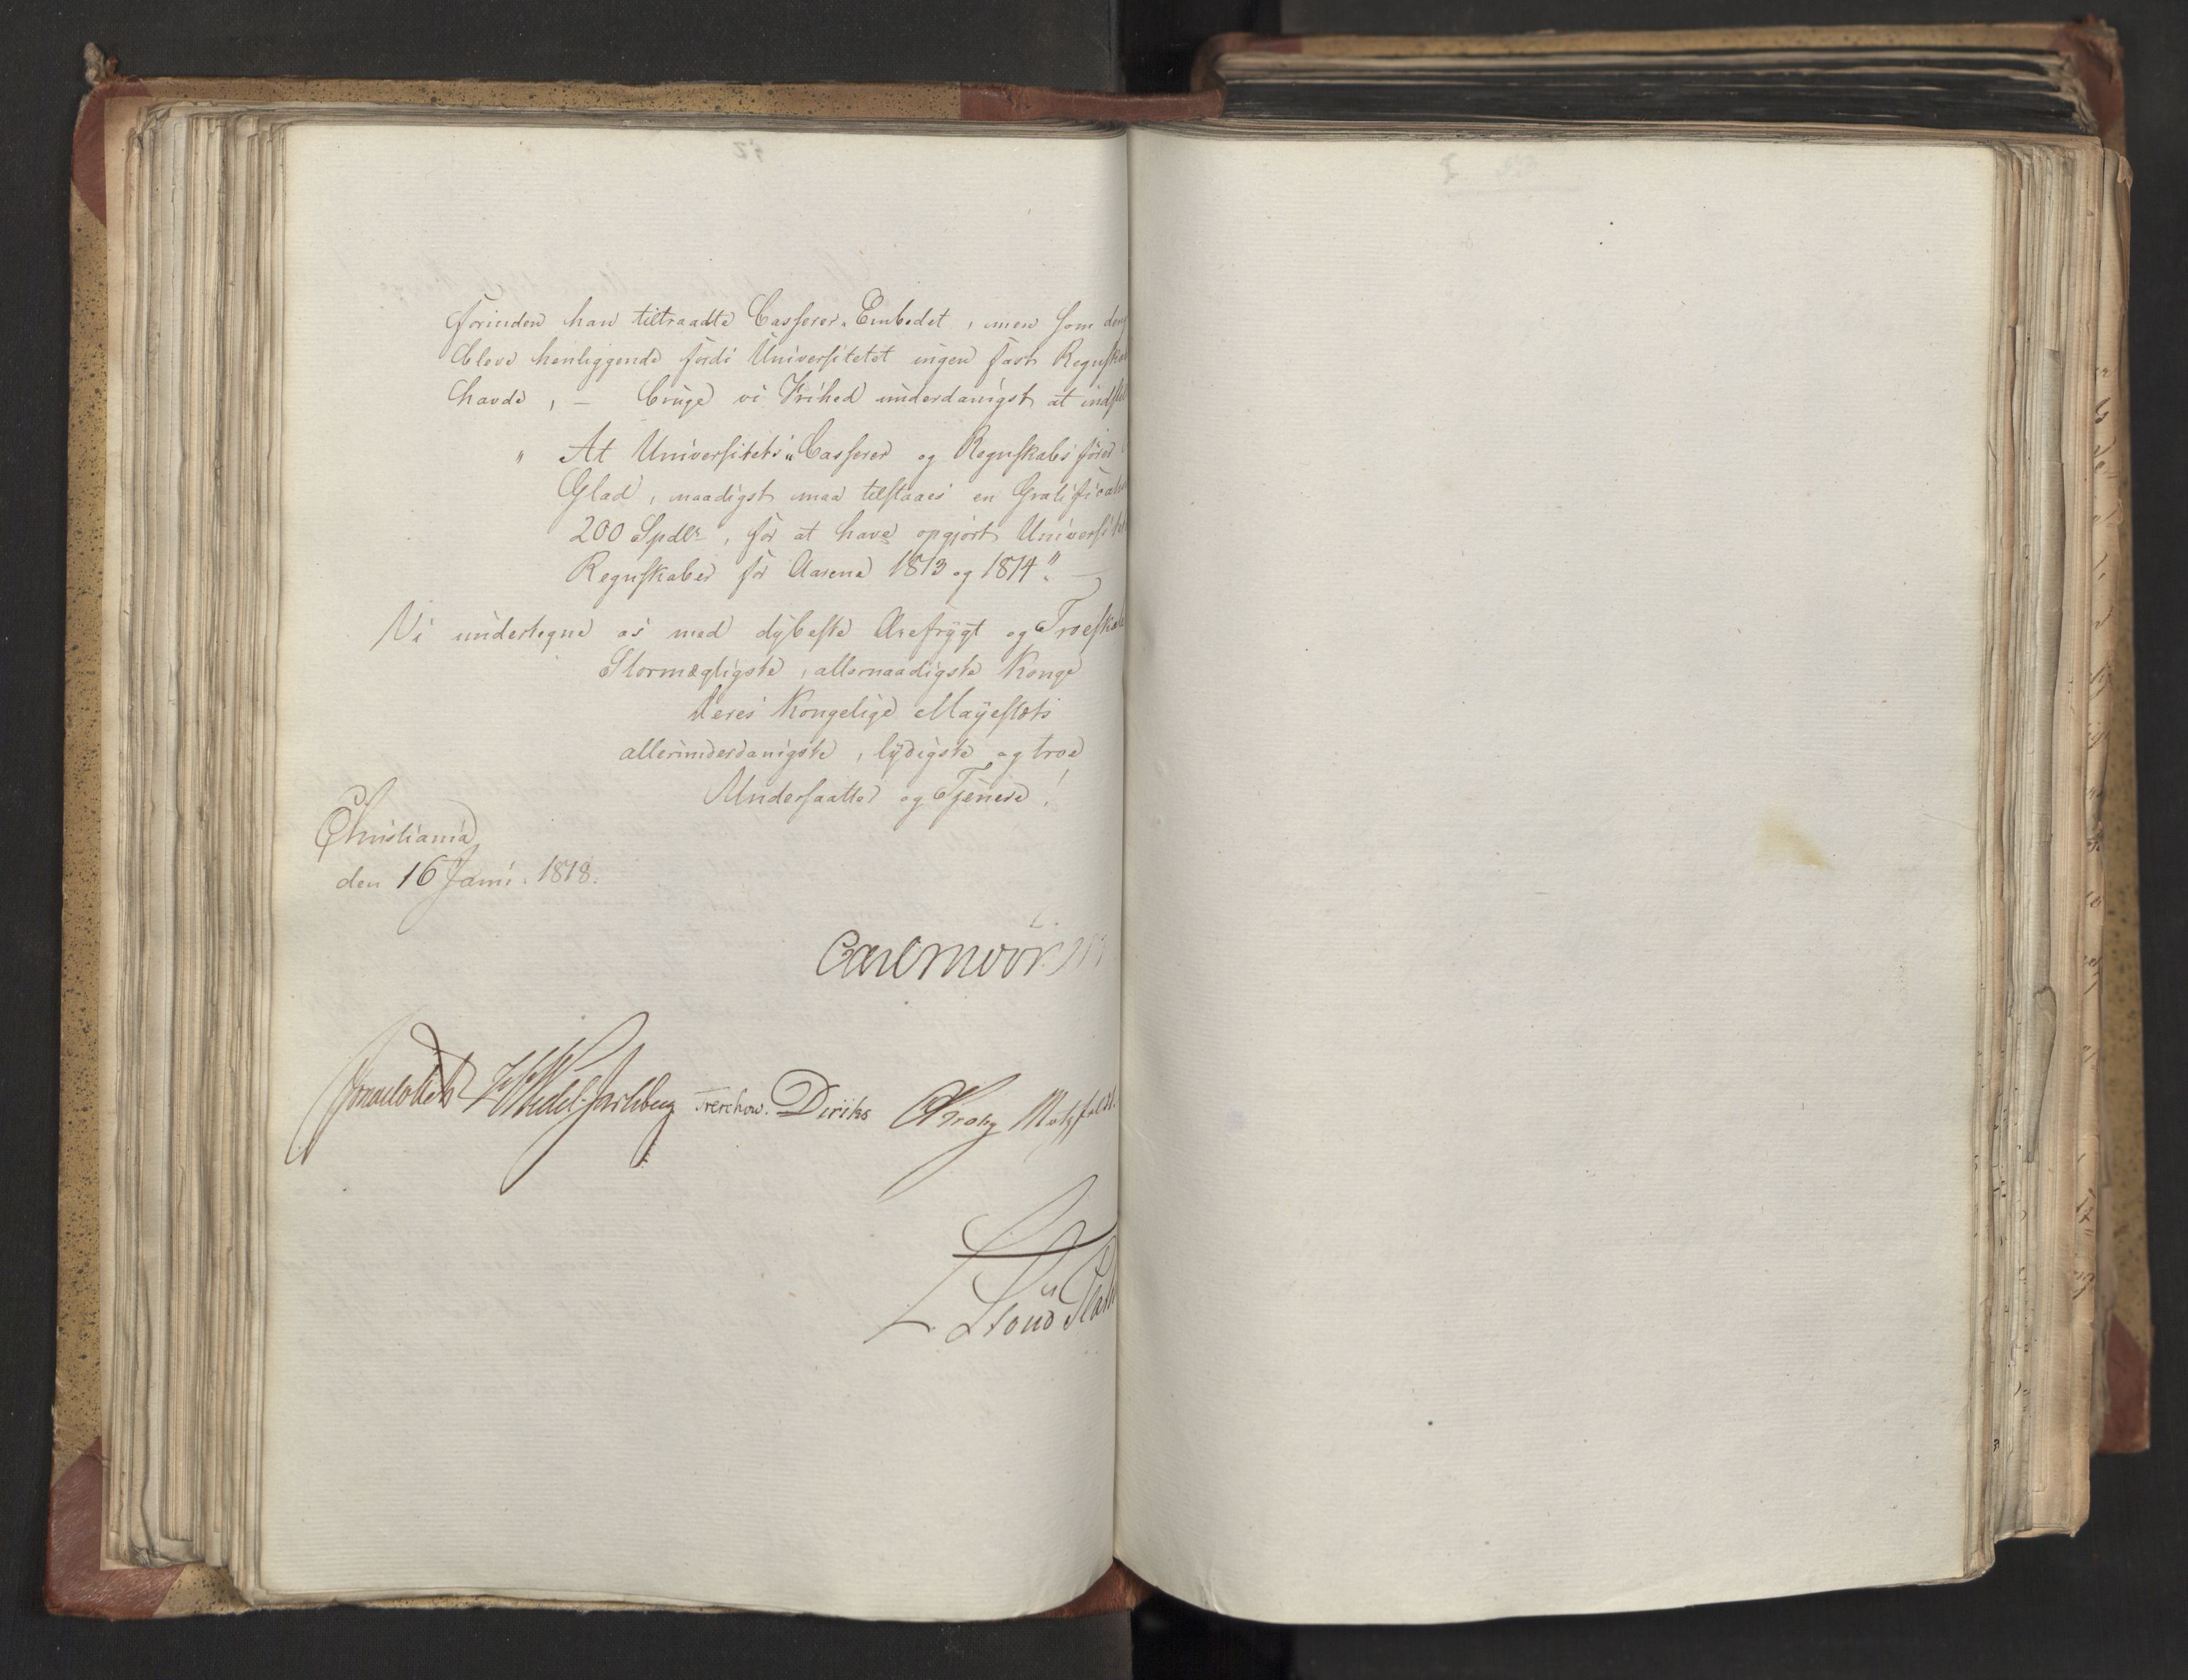 forinden han tiltraadte Casserer-Embedet, men som
bleve henliggende fordi Universitetet ingen fast
havde, – bruge vi Frihed underdanigst at
" At Universitets-Casserer og Regnskabsfører
Glad, naadigst maa tilstaaes en
200 Spdlr, for at have opgjort
Regnskaber for Aarene 1813 og 1814". –
Vi undertegne os med dybeste Ærefrygt og
Stormægtigste, allernaadigste Konge
Deres Kongelige Mayestæts
allerunderdanigste, lydigste og troe
Undersaatter og Tjenere!
Christiania
den 16 Juni. 1818.
Carl Mörner
Sommerhielm Wedel-Jarlsberg Treschow. Diriks Krohg Motzfeldt.